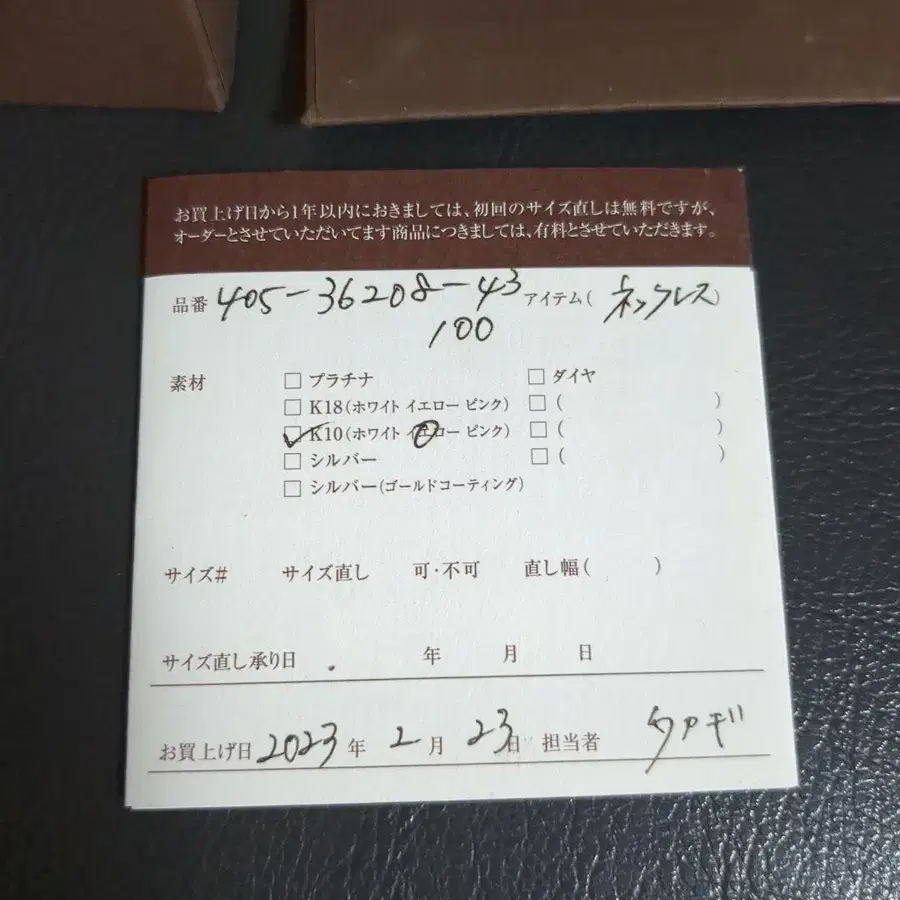 お買上げ日から1年以内におきましては、初回のサイズ直しは無料ですが、
オーダーとさせていただいてます商品につきましては、有料とさせていただきます。
品番 405-36208-43 アイテム( ネックレス )
100
素材 □ プラチナ □ ダイヤ
□ K18(ホワイト イエロー ピンク) □ ( )
☑ K10(ホワイト イエロー ピンク) □ ( )
□ シルバー □ ( )
□ シルバー(ゴールドコーティング)
サイズ# サイズ直し 可・不可 直し幅( )
サイズ直し承り日 年 月 日
お買上げ日 2023 年 2 月 23 日 担当者